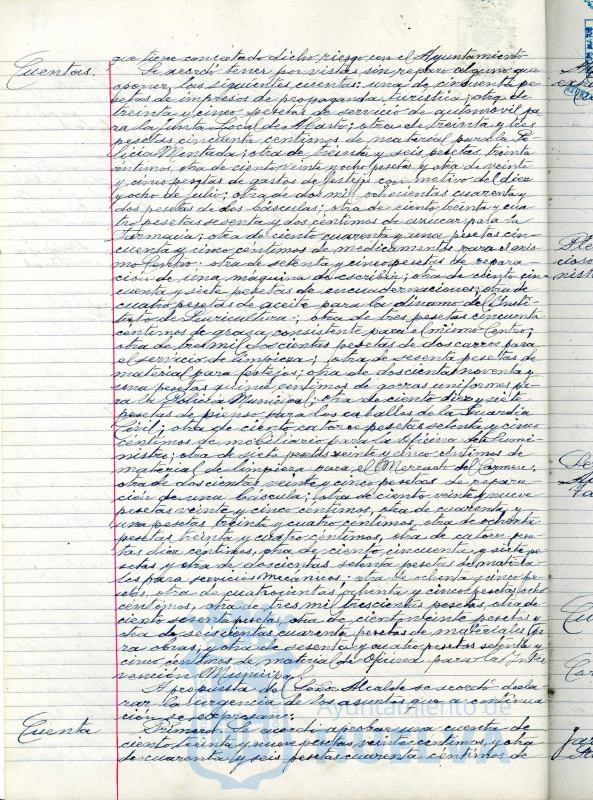 que tiene concertado dicho riesgo con el Ayuntamiento
Cuentas. Se acordó tener por vistas sin reparo alguno que
oponer, las siguientes cuentas: una de cincuenta pe-
setas de impresos de propaganda turística; otra de
treinta y cinco pesetas de servicio de automóvil pa-
ra la Junta Local de Abasto; otra de treinta y tres
pesetas cincuenta centimos de material para la Po-
licía Montada; otra de treinta y seis pesetas treinta
centimos, otra de ciento veinte y ocho pesetas y otra de veinte
y cinco pesetas de gastos de festejos con motivo del diez
y ocho de julio; otra de dos mil ochocientas cuarenta y
dos pesetas de dos básculas; otra de ciento treinta y cua-
tro pesetas sesenta y dos céntimos de azucar para la
Farmacia; otra de ciento cuarenta y una pesetas cin-
cuenta y cinco centimos de medicamentos para el mis-
mo Centro; otra de setenta y cinco pesetas de repara-
cion de una máquina de escribir; otra de ciento cin-
cuenta y siete pesetas de encuadernaciones; otra de
cuatro pesetas de aceite para la dinamo del Insti-
tuto de Puericultura; otra de tres pesetas cincuenta
centimos de grasa consistente para el mismo Centro;
otra de tres mil doscientas pesetas de dos carros para
el servicio de limpieza; otra de sesenta pesetas de
material para festejos; otra de doscientas noventa y
una pesetas quince centimos de gorras uniformes pa-
ra la Policía Municipal; otra de ciento diez y siete
pesetas de pienso para los caballos de la Guardia
Civil; otra de ciento catorce pesetas setenta y cinco
céntimos de mobiliario para la Oficina de Sumi-
nistro; otra de siete pesetas veinte y cinco centimos de
material de limpieza para el Mercado del Carmen;
otra de doscientas veinte y cinco pesetas de repara-
ción de una báscula; otra de ciento veinte y nueve
pesetas veinte y cinco centimos, otra de cuarenta y
una pesetas treinta y cuatro céntimos, otra de ochenta
pesetas treinta y cuatro céntimos, otra de catorce pese-
tas diez centimos, otra de ciento cincuenta y siete pe-
setas y otra de doscientas setenta pesetas de materia-
les para servicios mecanicos; otra de ochenta y cinco pe-
setas, otra de cuatrocientas ochenta y cinco pesetas ocho
céntimos, otra de tres mil trescientas pesetas, otra de
ciento sesenta pesetas, otra de ciento veinte pesetas y
otra de seiscientas cuarenta pesetas de materiales pa-
ra obras; y otra de sesenta y cuatro pesetas setenta y
cinco céntimos de material de oficina para la Inter-
vencion Municipal.
A propuesta del Señor Alcalde se acordó decla-
rar la urgencia de los asuntos que a continua-
cion se expresan:
Cuenta Primero.
aprobar una cuenta de
ciento treinta y nueve pesetas veinte centimos, y otra
de cuarenta y seis pesetas cuarenta centimos de
Ayuntamiento de
HUELVA